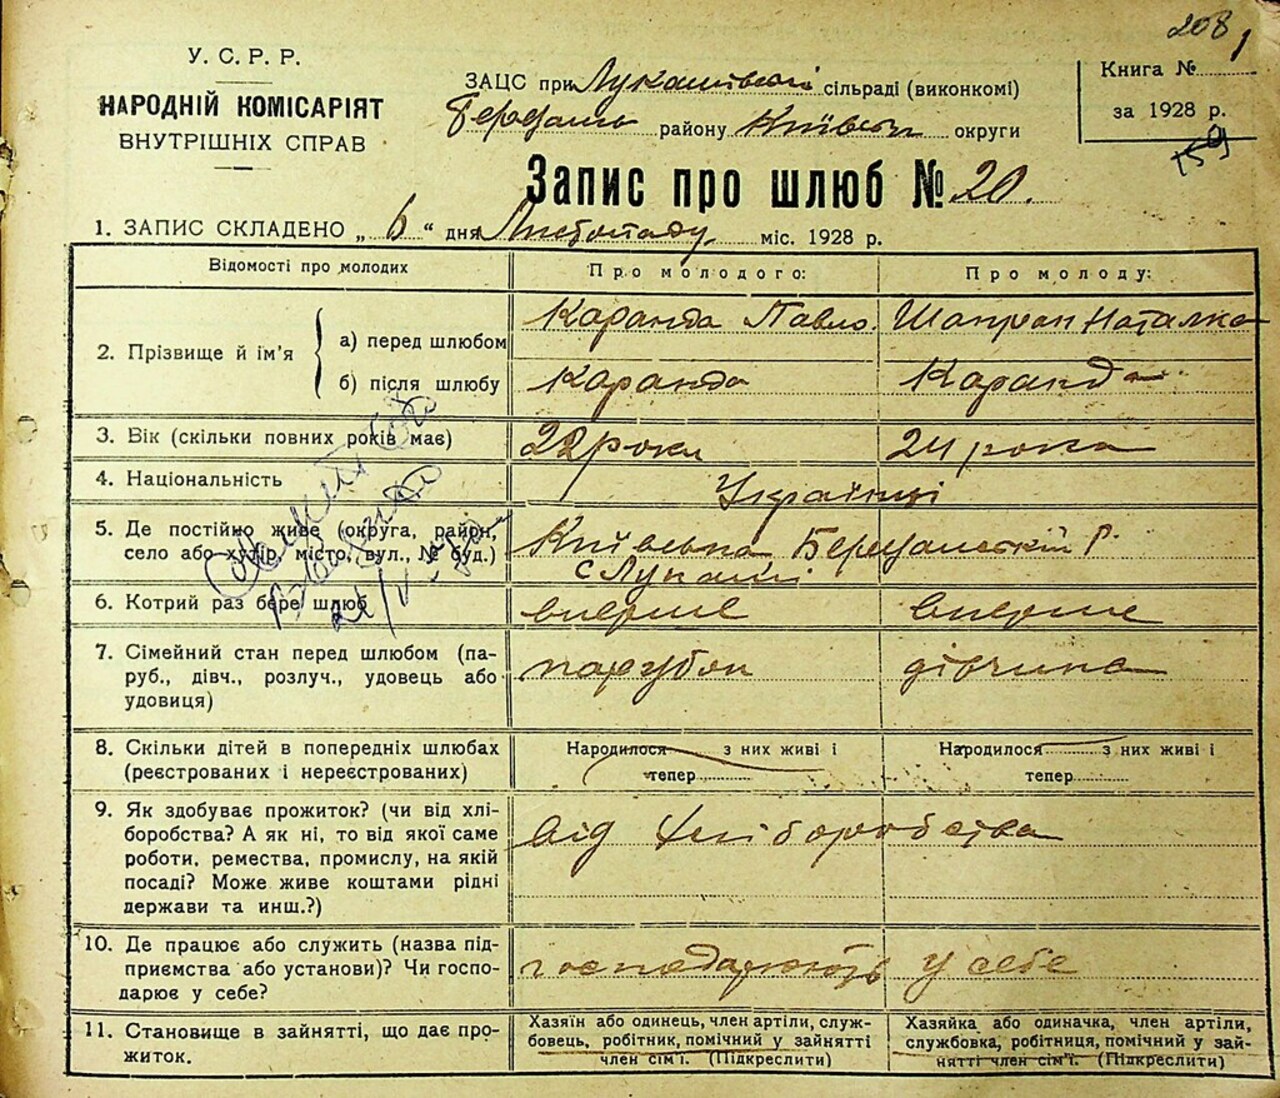 208
У. С. Р. Р.
НАРОДНІЙ КОМІСАРІЯТ
ВНУТРІШНІХ СПРАВ
ЗАЦС при Лукашівській сільраді (виконкомі)
району Київськ округи
Книга №
за 1928 р.
159
Запис про шлюб № 20.
1. ЗАПИС СКЛАДЕНО „ 6 “ дня Листопаду міс. 1928 р.
Відомості про молодих
Про молодого:
Про молоду:
2. Прізвище й ім'я
а) перед шлюбом
Каранда Павло.
Шапран Наталка
б) після шлюбу
Каранда
Каранда
3. Вік (скільки повних років має)
22 роки
24 рока
4. Національність
Українці
5. Де постійно живе (округа, район,
село або хутір, місто, вул., № буд.)
Київська Березанський Р.
с Лукаші
6. Котрий раз бере шлюб
вперше
вперше
7. Сімейний стан перед шлюбом (па-
руб., дівч., розлуч., удовець або
удовиця)
парубок
дівчина
8. Скільки дітей в попередніх шлюбах
(реєстрованих і нереєстрованих)
Народилося з них живі і
тепер
Народилося з них живі і
тепер
9. Як здобуває прожиток? (чи від хлі-
боробства? А як ні, то від якої саме
роботи, ремества, промислу, на якій
посаді? Може живе коштами рідні
держави та инш.?)
від хліборобства
10. Де працює або служить (назва під-
приємства або установи)? Чи госпо-
дарює у себе?
господарюють у себе
11. Становище в зайнятті, що дає про-
житок.
Хазяїн або одинець, член артіли, служ-
бовець, робітник, помічний у зайнятті
член сім'ї. (Підкреслити)
Хазяйка або одиначка, член артіли,
службовка, робітниця, помічний у зай-
нятті член сім'ї. (Підкреслити)